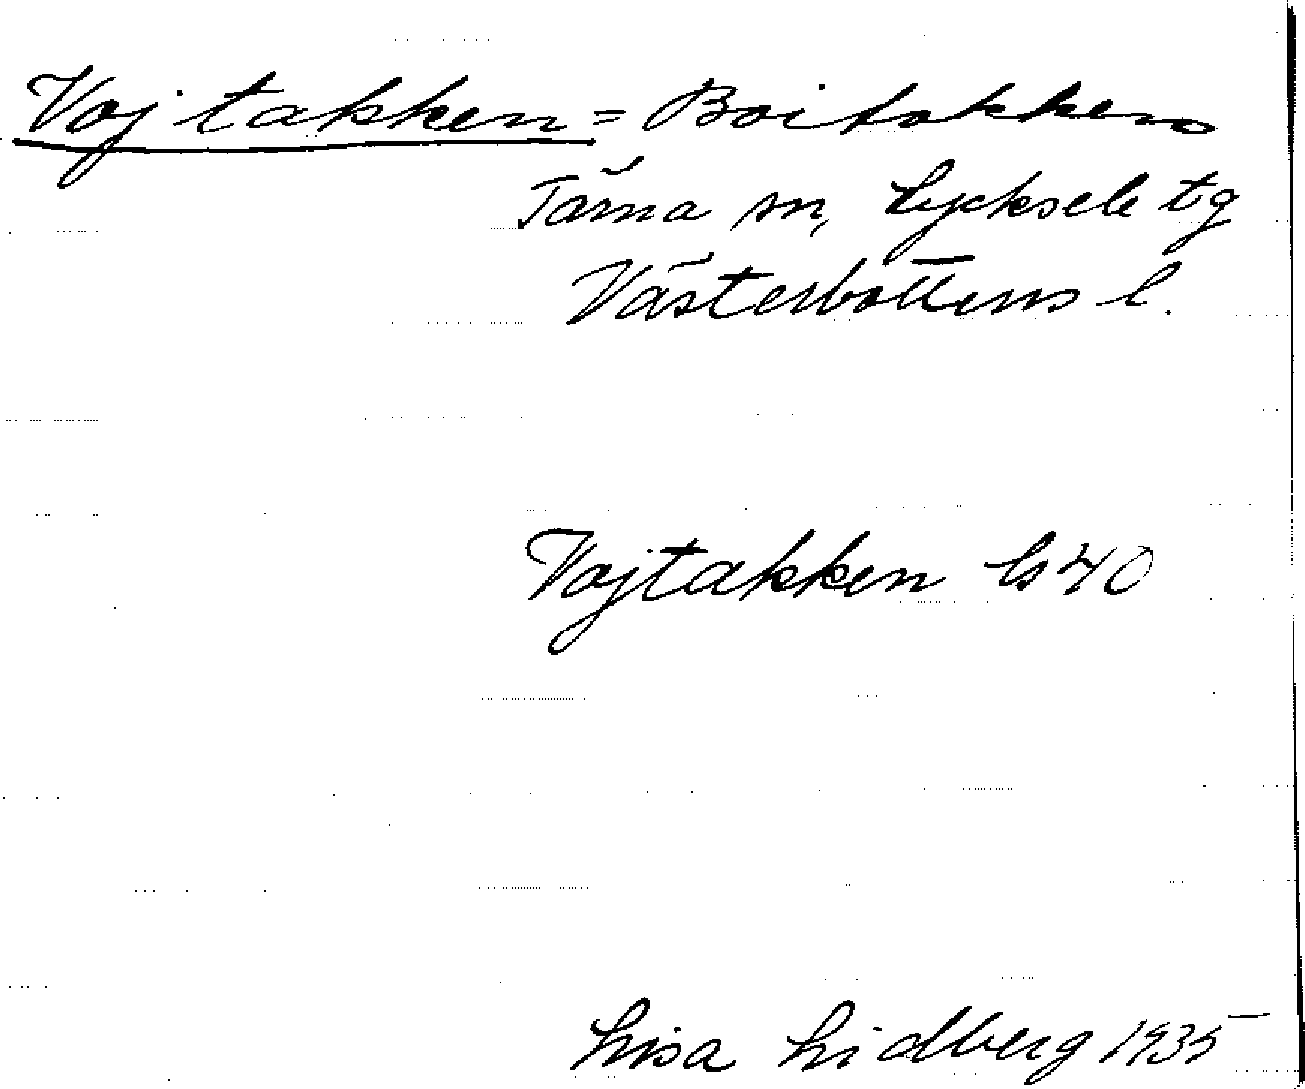 Vojtakken = Boitokken
Tärna sn, Lycksele tg
Västerbottens l.
Vojtakken bs 40
Lisa Lidberg 1935